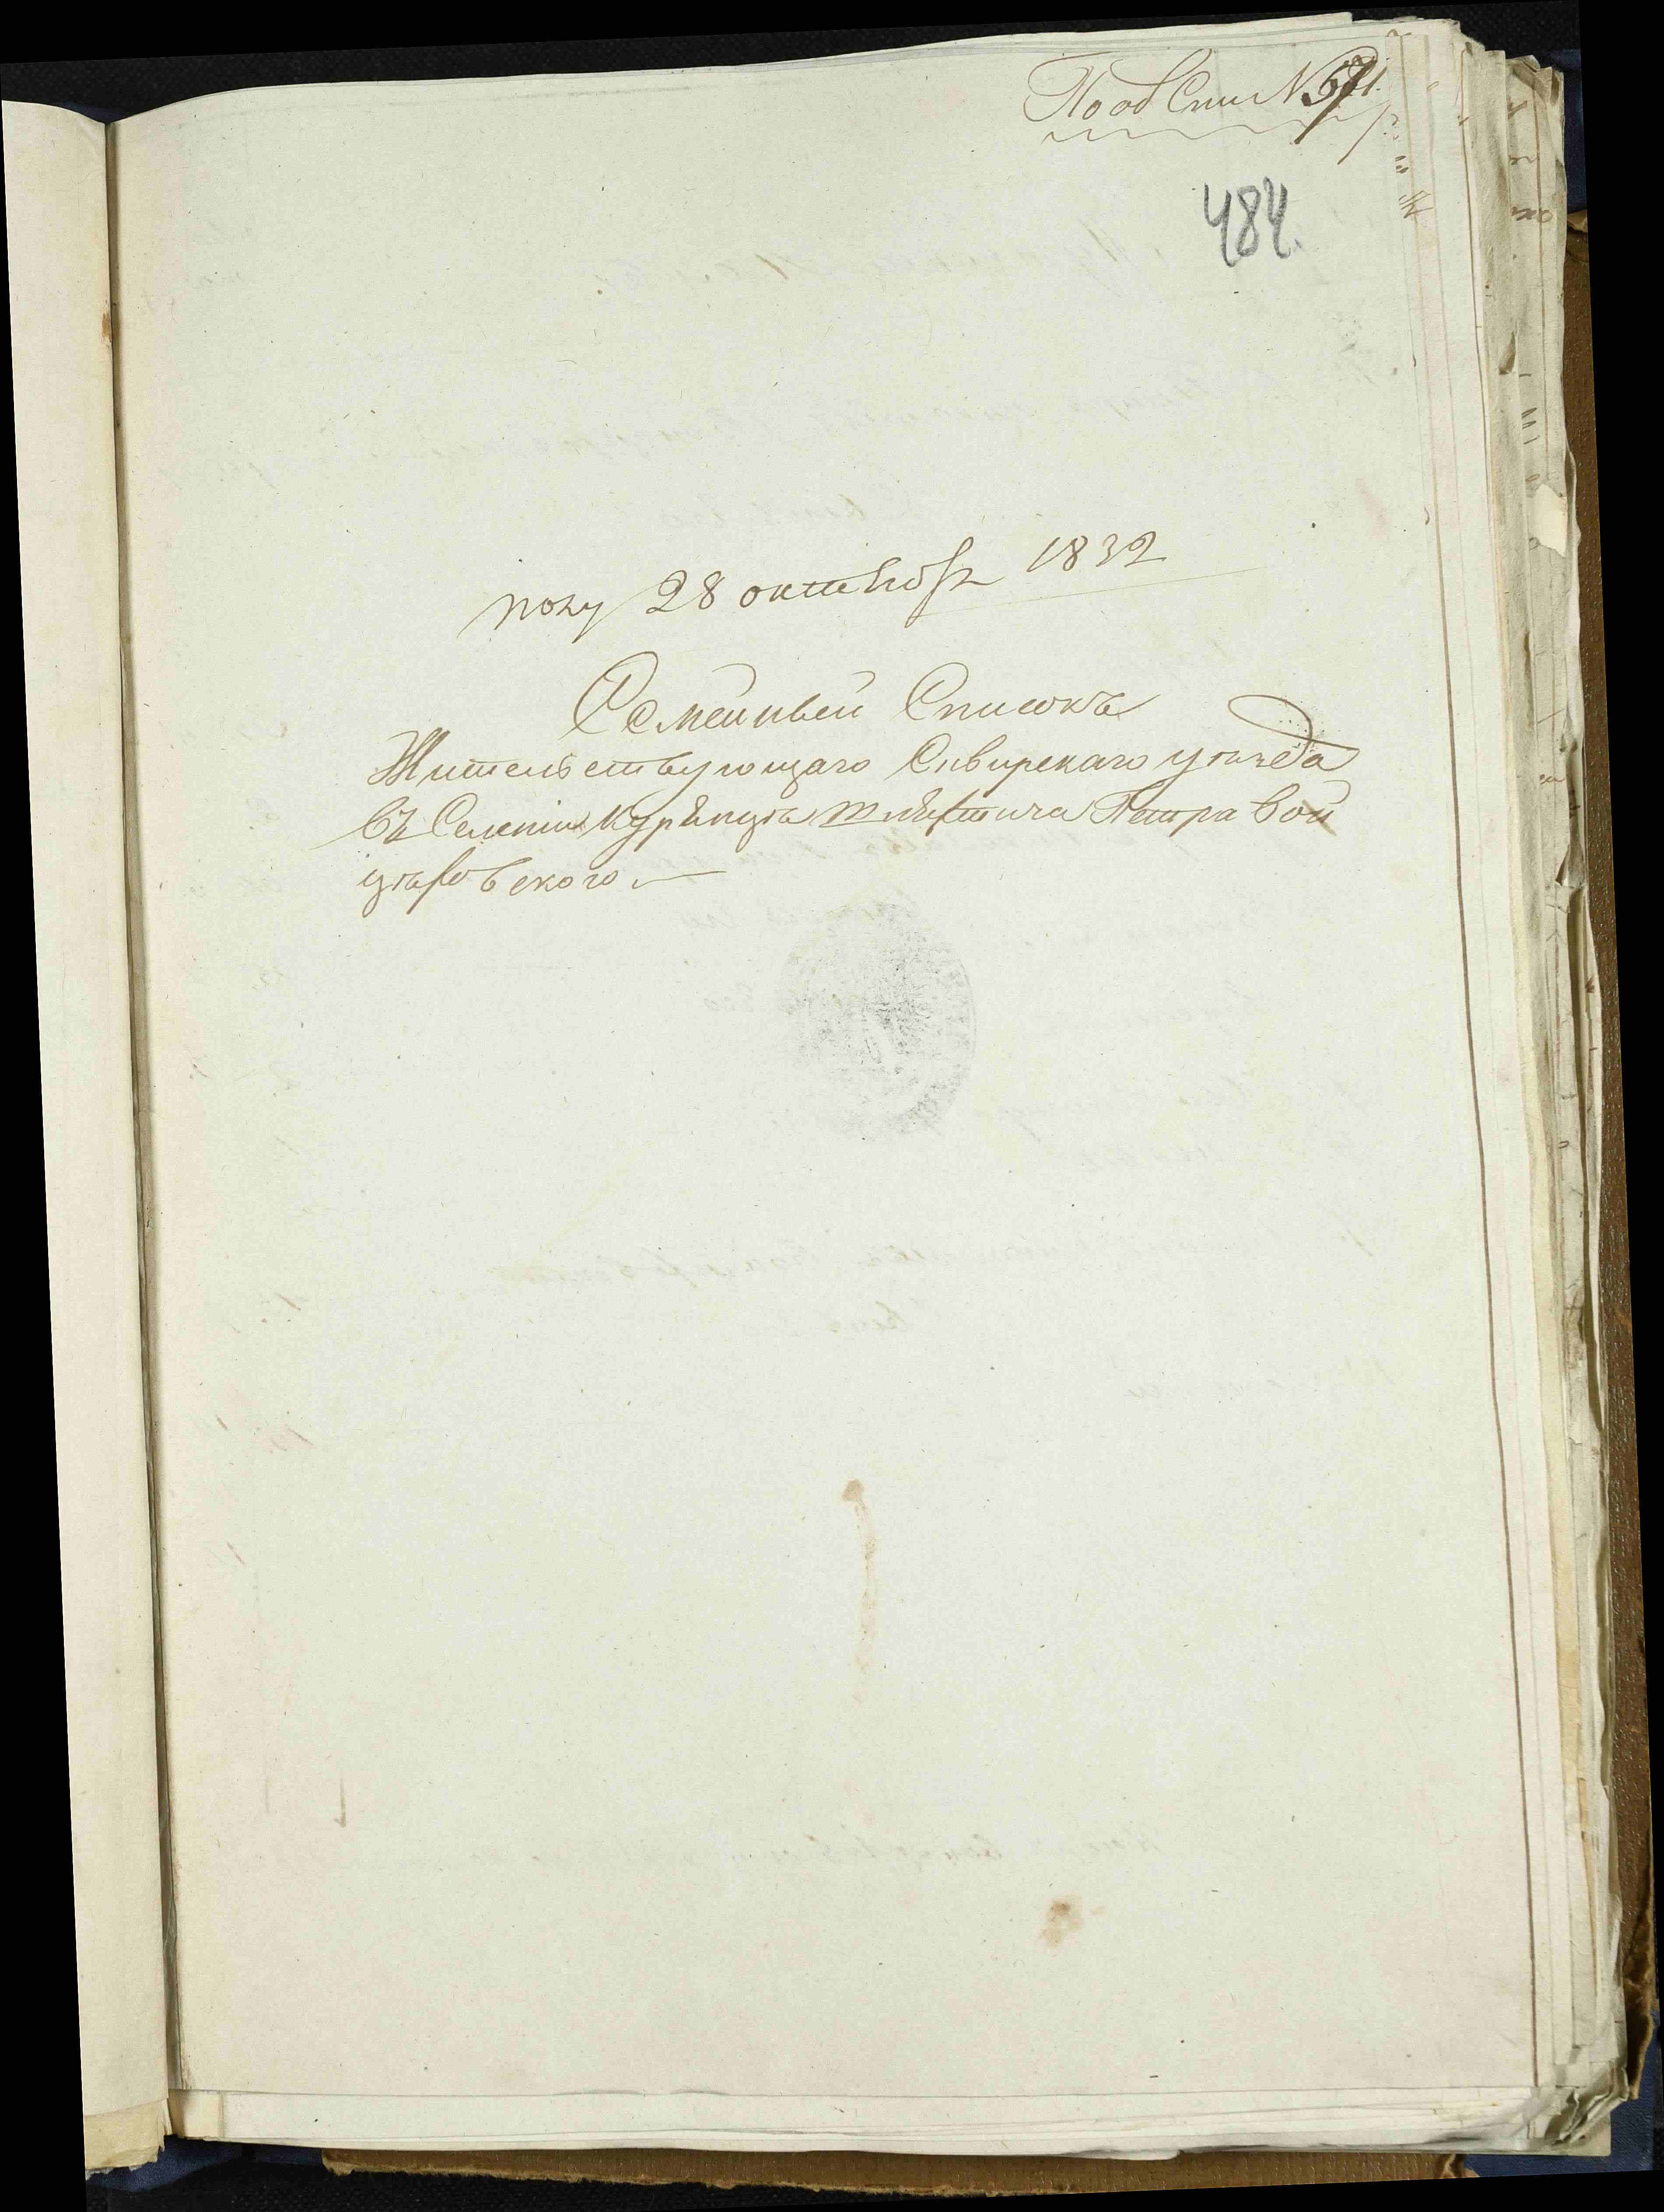 По об Спис №
484.
полу 28 октября 1832
Семейный Списокъ
Жительствующаго Сквирскаго уезда
въ Селении Курянцяхъ шляхтича Петра Вой
царовского